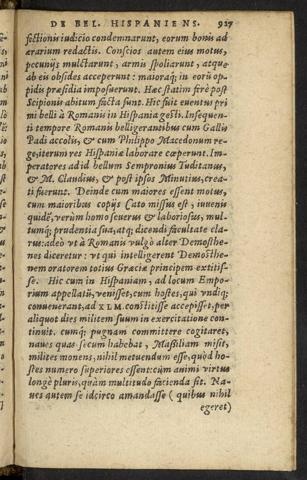 DE BEL. HISPANIENS. 927
fectionis iudicio condemnarunt, eorum bonis ad
ærarium redactis. Conscios autem eius motus,
pecuniis mulctarunt, armis spoliarunt, atque
ab eis obsides acceperunt: maioraq; in eorū op-
pidis præsidia imposuerunt. Hæc statim ferè post
Scipionis abitum facta sunt. Hic fuit euentus pri
mi belli à Romanis in Hispania gesti. Insequen-
ti tempore Romanis belligerantibus cum Gallis
Padi accolis, & cum Philippo Macedonum re-
ge, iterum res Hispaniæ laborare cœperunt. Im-
peratores ad id bellum Sempronius Tuditanus,
& M. Claudius, & post ipsos Minutius, crea-
ti fuerunt. Vt deinde cum maiores essent motus,
cum maioribus copijs Cato missus est, iuuenis
quidē, verùm homo seuerus & laboriosus, mul-
tumq; prudentia sua, atq; dicendi facultate cla-
rus: adeò vt à Romanis vulgò alter Demosthe-
nes diceretur: vt qui intelligerent Demosthe-
nem oratorem totius Græciæ principem extitis-
se. Hic cum in Hispaniam, ad locum Empo-
rium appellatū, venisset, cum hostes, qui vndiq;
conuenerant, ad XLM. constitisse accepisset, per
aliquot dies militem suum in exercitatione con-
tinuit. cumq; pugnam committere cogitaret,
naues quas secum habebat, Massiliam misit,
milites monens, nihil metuendum esse, quòd ho-
stes numero superiores essent: cùm animi virtus
longè pluris, quàm multitudo facienda sit. Na-
ues autem se idcirco amandasse ( quibus nihil
egeret)